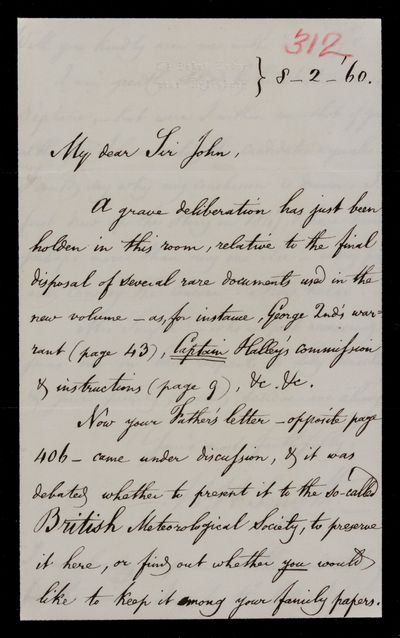 312
} 8-2-'60.
My dear Sir John,
A grave deliberation has just been
holden in this room, relative to the final
disposal of several rare documents used in the
new volume - as, for instance, George 2nd's war=
rant (page 43), Captain Halley's commission
& instructions (page 9), &c. &c.
Now your Father's letter - opposite page
406 - came under discussion, & it was
debated whether to present it to the so-called
British Meteorological Society, to preserve
it here, or find out whether you would
like to keep it among your family papers.